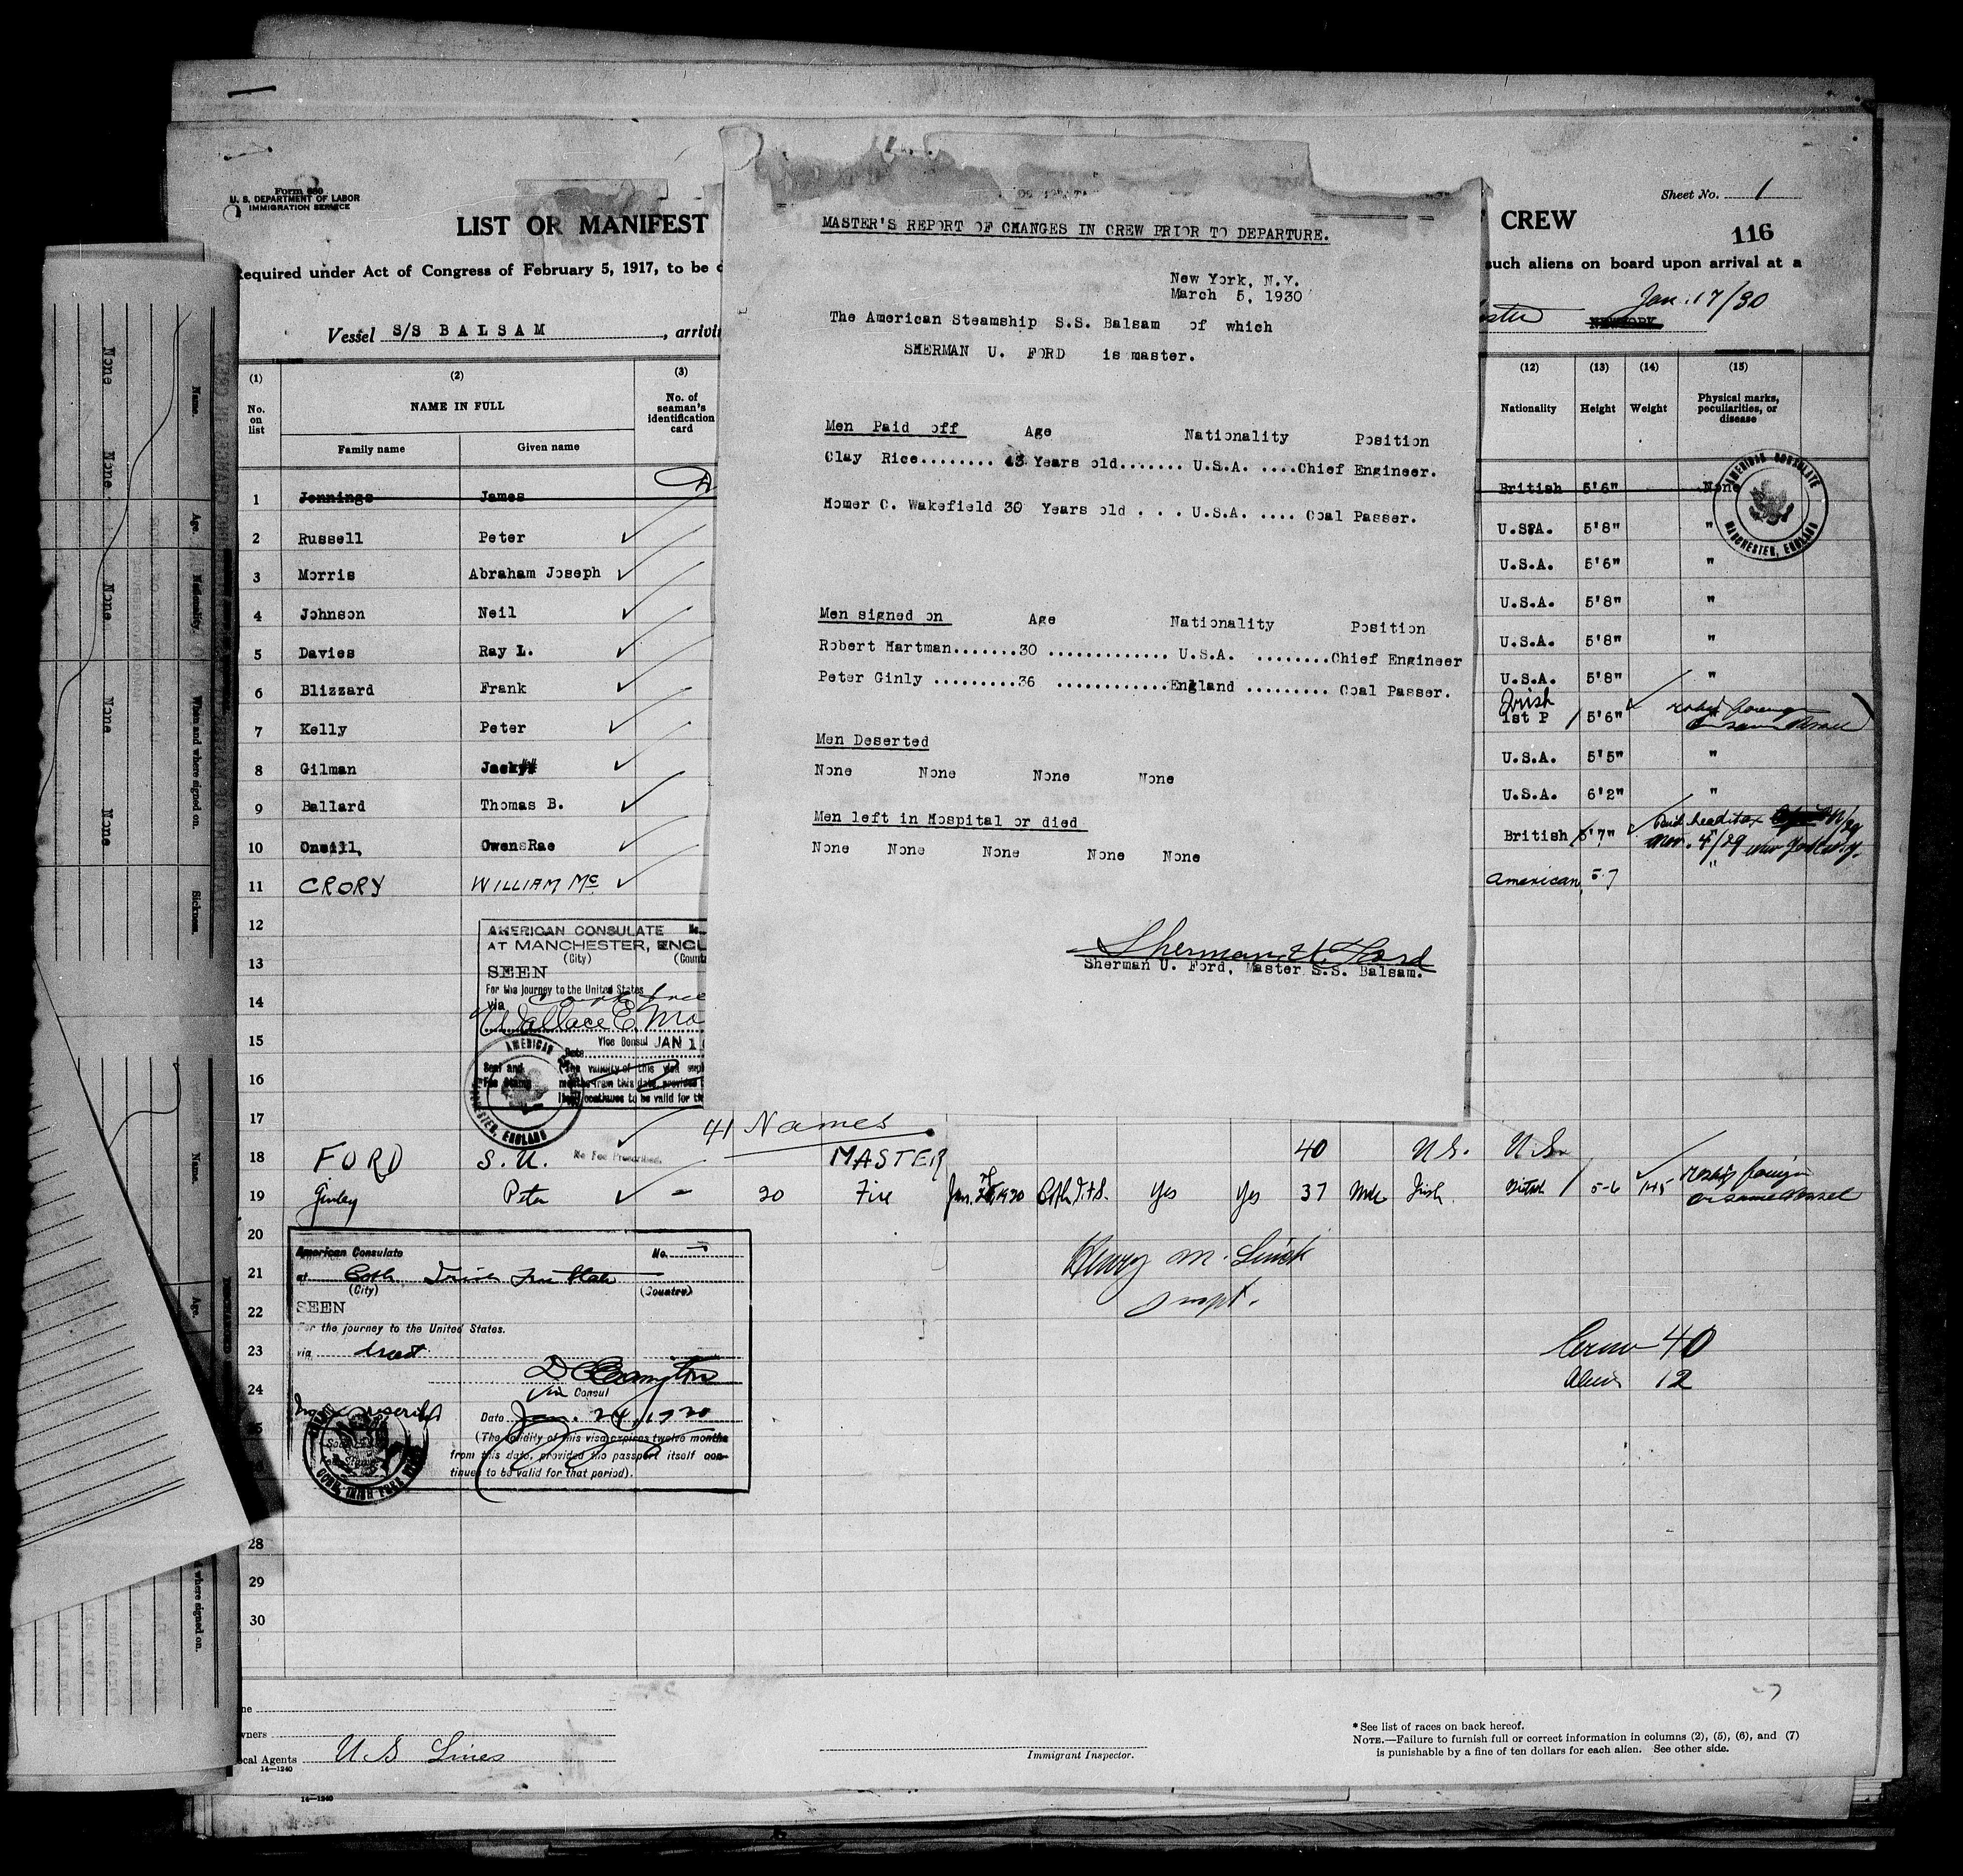 Form 680
U. S. DEPARTMENT OF LABOR
IMMIGRATION SERVICE
Sheet No. 1
LIST OR MANIFEST
CREW
116
Required under Act of Congress of February 5, 1917, to be
such aliens on board upon arrival at a
Vessel S/S BALSAM, arrivi
Jan. 17/30
NEW YORK
MASTER'S REPORT OF CHANGES IN CREW PRIOR TO DEPARTURE.
New York, N.Y.
March 5, 1930
The American Steamship S.S. Balsam of which
SHERMAN U. FORD is master.
Men Paid off Age Nationality Position
Clay Rice........ 43 Years old....... U.S.A. ....Chief Engineer.
Homer C. Wakefield 30 Years old . . . U.S.A. .... Coal Passer.
Men signed on Age Nationality Position
Robert Hartman.......30 ............. U.S.A. ........Chief Engineer
Peter Ginly .........36 ............England ......... Coal Passer.
Men Deserted
None None None None
Men left in Hospital or died
None None None None None
Sherman U. Ford
Sherman U. Ford, Master S.S. Balsam.
(1) (2) (3) (12) (13) (14) (15)
No. on list
NAME IN FULL
Family name Given name
No. of seaman's identification card
Nationality Height Weight
Physical marks, peculiarities, or disease
1 Jennings James British 5'6" None
2 Russell Peter U.S.A. 5'8" "
3 Morris Abraham Joseph U.S.A. 5'6" "
4 Johnson Neil U.S.A. 5'8" "
5 Davies Ray L. U.S.A. 5'8" "
6 Blizzard Frank U.S.A. 5'8" "
7 Kelly Peter Irish 1st P 5'6"
8 Gilman Jack U.S.A. 5'5" "
9 Ballard Thomas B. U.S.A. 6'2" "
10 Oneill, Owens Rae British 5'7" Paid head tax
Nov. 4/29 New York N.Y.
11 CRORY WILLIAM Mc American 5-7 "
AMERICAN CONSULATE MANCHESTER, ENGLAND
12
13
14
15
16
17
AMERICAN CONSULATE No.
AT MANCHESTER, ENGL
(City) (Count
SEEN
For the journey to the United States
via
Wallace E. Mo
Vice Consul JAN 1
Date
Seal and Fee Stamp
(The validity of this visa expi
months from this date, provided
itself continues to be valid for th
AMERICAN MANCHESTER, ENGLAND
No Fee Prescribed.
41 Names
18 FORD S. U. MASTER 40 U.S. U.S.
19 Ginley Peter - 20 Fire Jan. 24, 1930 Cobh I.F.S. Yes Yes 37 Male Irish British 5-6 145 reship foreign
on same vessel
20
21
22
23
24
American Consulate No.
at Cobh Irish Free State
(City) (Country)
SEEN
For the journey to the United States.
via direct
Vice Consul
No fee prescribed
Date Jan. 24, 1930
(The validity of this visa expires twelve months
from this date, provided the passport itself con-
tinues to be valid for that period).
COBH, IRISH FREE STATE
Henry M. Smith
Crew 40
Aliens 12
28
29
30
wners
ocal Agents U S Lines
14—1240
Immigrant Inspector.
* See list of races on back hereof.
NOTE.—Failure to furnish full or correct information in columns (2), (5), (6), and (7)
is punishable by a fine of ten dollars for each alien. See other side.
14—1240
Name. Age. Nationality. When and where signed on. Sickness.
None None None None None
Name. Age. where signed on.